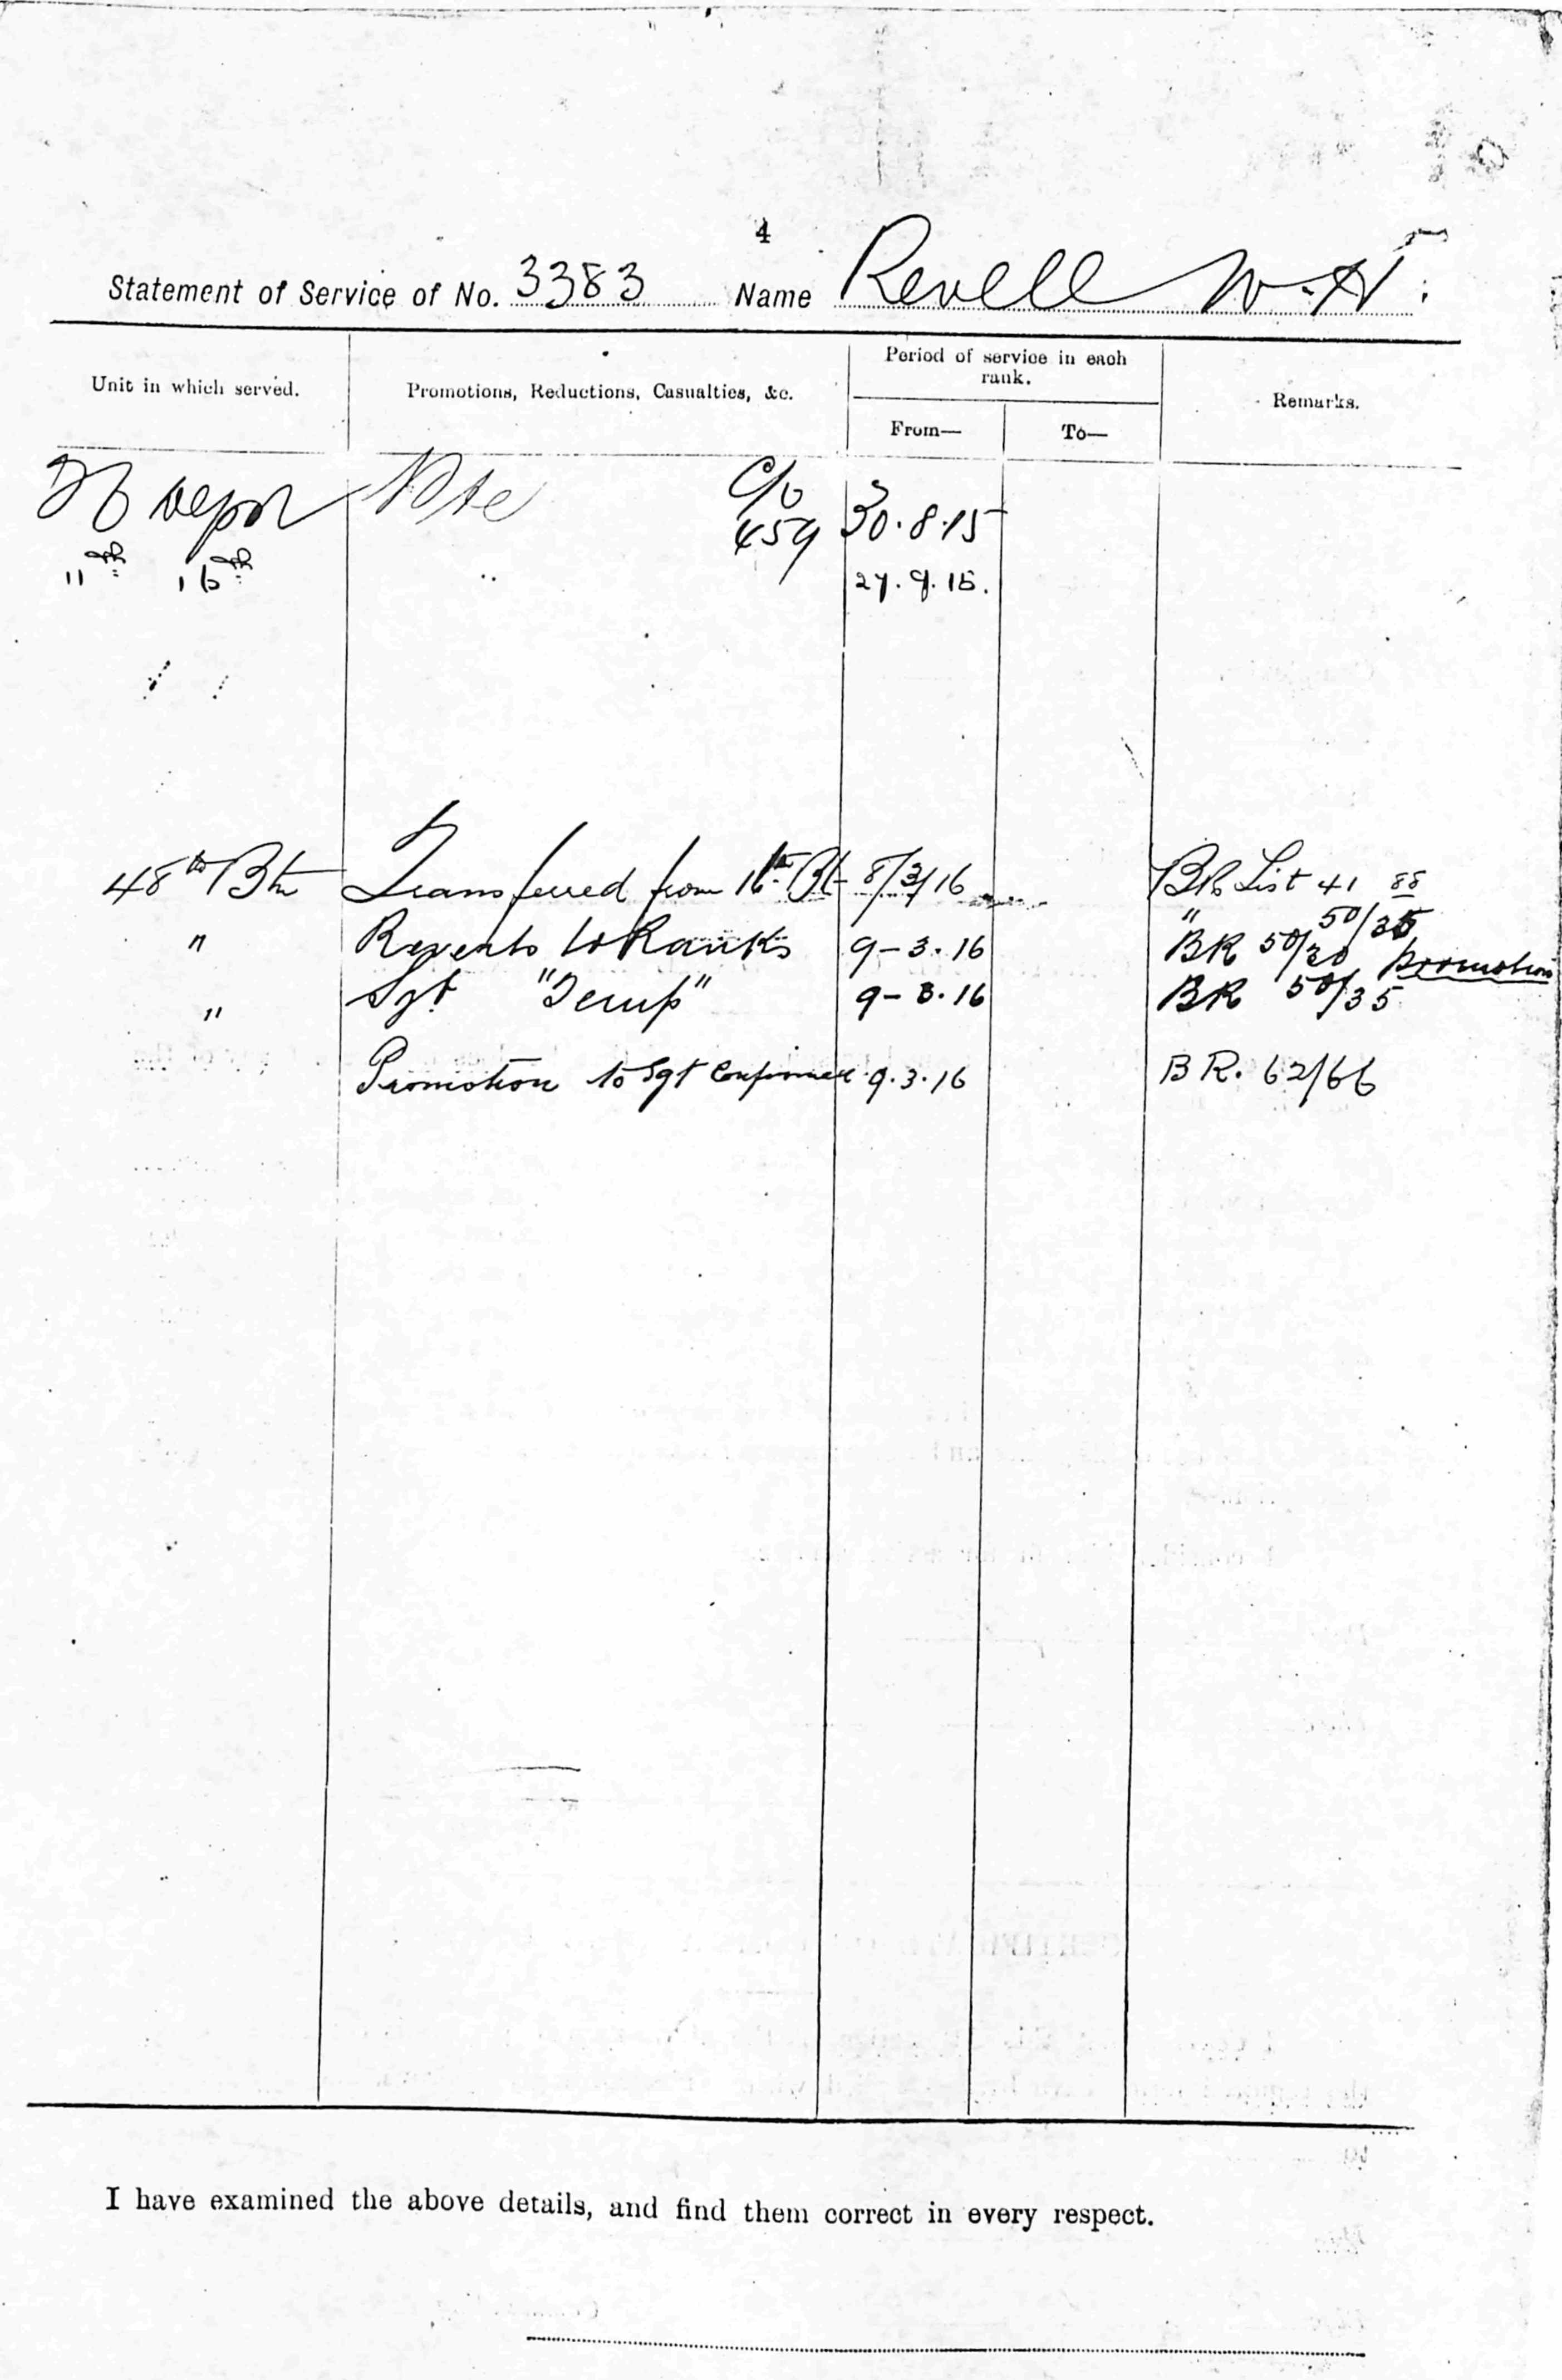 4
Statement of Service of No. 3383 Name Revell W. H.
Unit in which served. Promotions, Reductions, Casualties, &c. Period of service in each rank. Remarks.
From— To—
Depot Pte C/o 459 30.8.15
11th 16th " 27.9.15.
48th Btn Transferred from 16th Bt 8/3/16 BR List 41 88
" 50/35
" Reverts to Ranks 9-3.16 BR 50/20 promotion
" Sgt "Temp" 9-3.16 BR 50/35
Promotion to Sgt Confirmed 9.3.16 BR. 62/66
I have examined the above details, and find them correct in every respect.